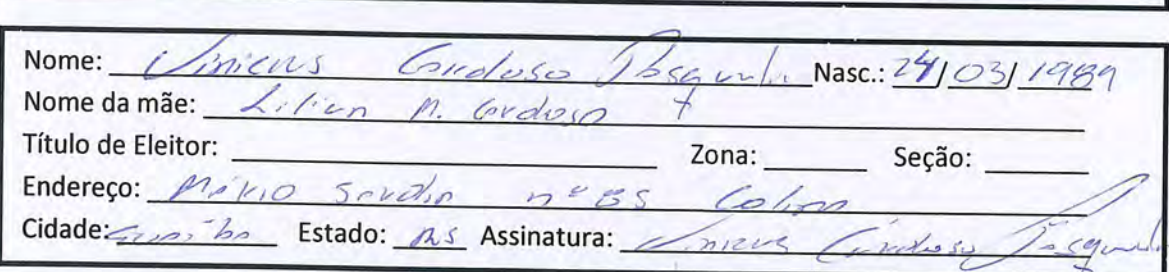 Nome: Vinicius Cardoso Pasqualin Nasc.: 24/03/1989
Nome da mãe: Lilian M. Cardoso
Título de Eleitor: Zona: Seção:
Endereço: Mário nº 85 Colina
Cidade: Guaíba Estado: RS Assinatura: Vinicius Cardoso Pasqualin